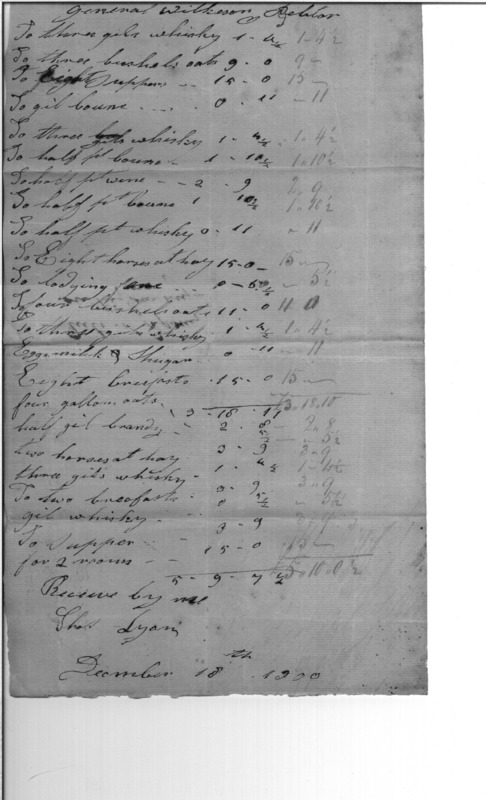 General Wilkeson Debtor
To three gils whisky 1 - 4½ 1 - 4½
To three bushels oats 9 - 0 9 -
To Eight Suppers 15 - 0 15 -
To gil boune 0 - 11 - 11
To three gils whisky 1 - 4½ 1 - 4½
To half pt boune 1 - 10½ 1 - 10½
To half pt wine 2 - 9 2 - 9
To half pt boune 1 10½ 1 - 10½
To half pt whisky 0 - 11 - 11
To Eight horses at hay 15 - 0 - 15 -
To lodging 0 - 5½ - 5½
To four bushels oats 11 - 0 11 0
To three gils whisky 1 - 4½ 1 - 4½
Eggs milk & Shugar 0 - 11 - 11
Eight breefasts 15 - 0 15 -
four gallons oats
3 - 18 - 11 3 - 18 - 10
half gil brandy - 5½
two horses at hay 3 - 9 3 - 9
three gils whisky 1 - 4½ 1 - 4½
To two breefasts 3 - 9 3 - 9
gil whisky 0 5½ - 5½
To Supper 3 - 9 3 - 9
for 2 rooms 15 - 0 15 -
5 - 9 - 7½ 5 - 10 - 0½
Receive by me
Lyon
December 18th